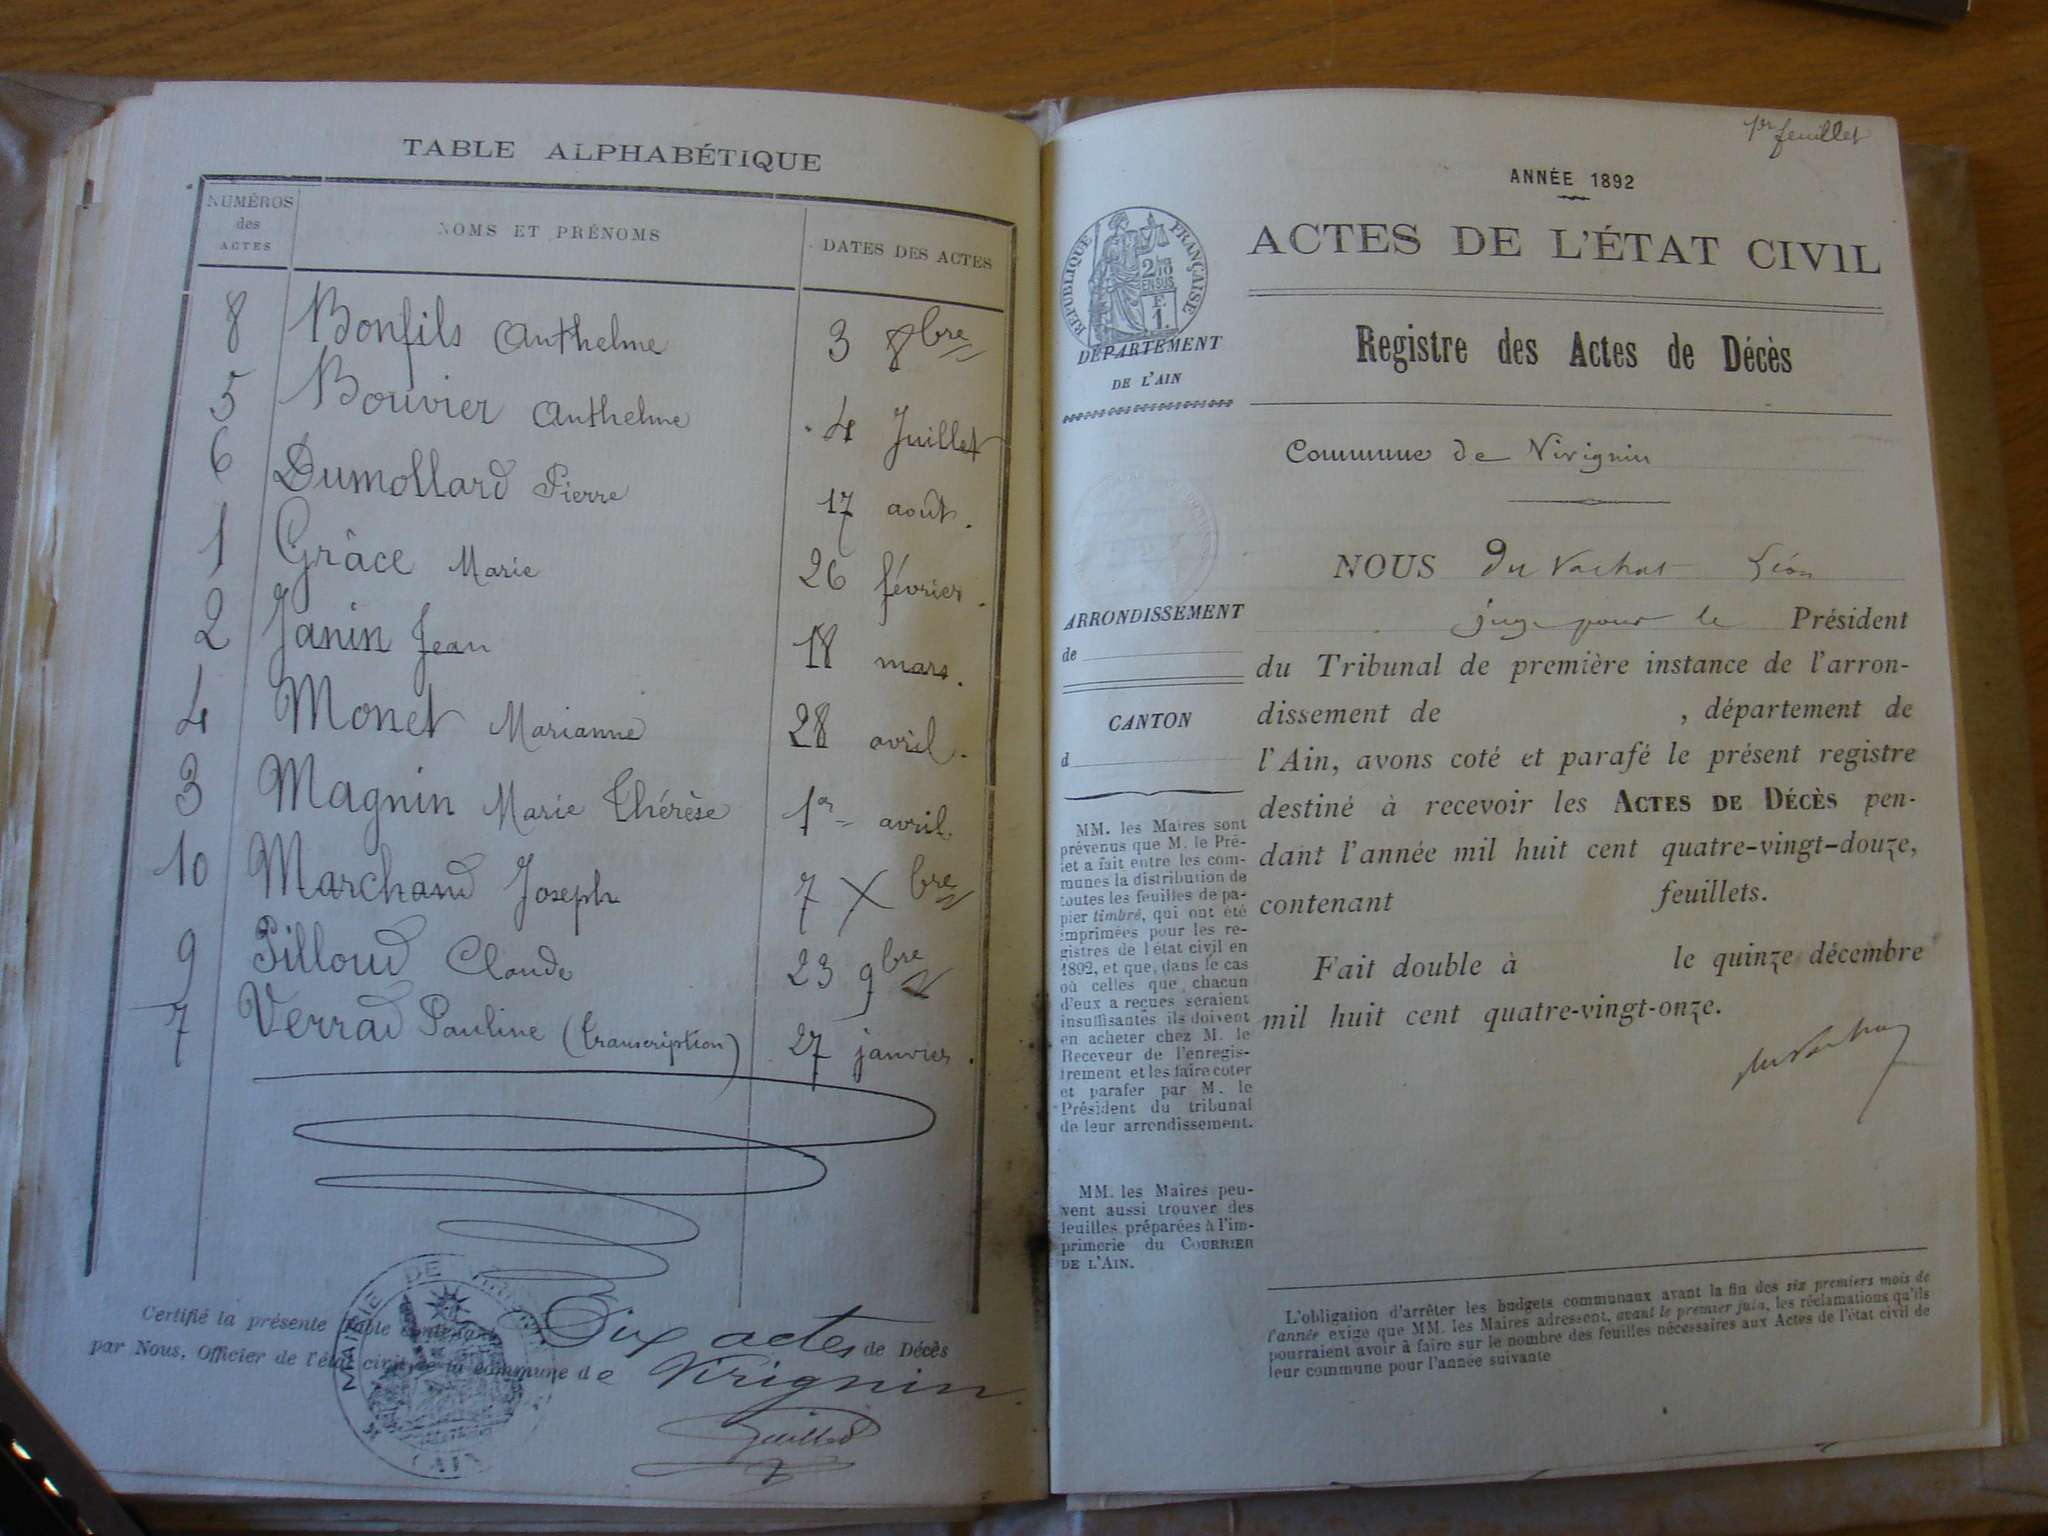 TABLE ALPHABÉTIQUE
NUMÉROS des ACTES
NOMS ET PRÉNOMS
DATES DES ACTES
8 Bonfils Anthelme 3 8bre
5 Bouvier Anthelme 4 Juillet
6 Dumollard Pierre 17 août.
1 Grâce Marie 26 février.
2 Janin Jean 18 mars.
4 Monet Marianne 28 avril.
3 Magnin Marie Thérèse 1er avril
10 Marchand Joseph 7 Xbre
9 Pilloud Claude 23 9bre
7 Verrad Pauline (transcription) 27 janvier.
Certifié la présente Table contenant Dix actes de Décès
par Nous, Officier de l'état civil de la commune de Virignin
MAIRIE DE
AIN
1er feuillet
ANNÉE 1892
ACTES DE L'ÉTAT CIVIL
RÉPUBLIQUE FRANÇAISE
DÉPARTEMENT
DE L'AIN
Registre des Actes de Décès
Commune de Virignin
NOUS Du Vachat Léon
juge pour le Président
du Tribunal de première instance de l'arron-
dissement de , département de
l'Ain, avons coté et parafé le présent registre
destiné à recevoir les ACTES DE DÉCÈS pen-
dant l'année mil huit cent quatre-vingt-douze,
contenant feuillets.
Fait double à le quinze décembre
mil huit cent quatre-vingt-onze.
ARRONDISSEMENT
de
CANTON
d
MM. les Maires sont
prévenus que M. le Pré-
fet a fait entre les com-
munes la distribution de
toutes les feuilles de pa-
pier timbré, qui ont été
imprimées pour les re-
gistres de l'état civil en
1892, et que, dans le cas
où celles que chacun
d'eux a reçues seraient
insuffisantes ils doivent
en acheter chez M. le
Receveur de l'enregis-
trement et les faire coter
et parafer par M. le
Président du tribunal
de leur arrondissement.
MM. les Maires peu-
vent aussi trouver des
feuilles préparées à l'im-
primerie du COURRIER
DE L'AIN.
L'obligation d'arrêter les budgets communaux avant la fin des six premiers mois de
l'année exige que MM. les Maires adressent, avant le premier juin, les réclamations qu'ils
pourraient avoir à faire sur le nombre des feuilles nécessaires aux Actes de l'état civil de
leur commune pour l'année suivante